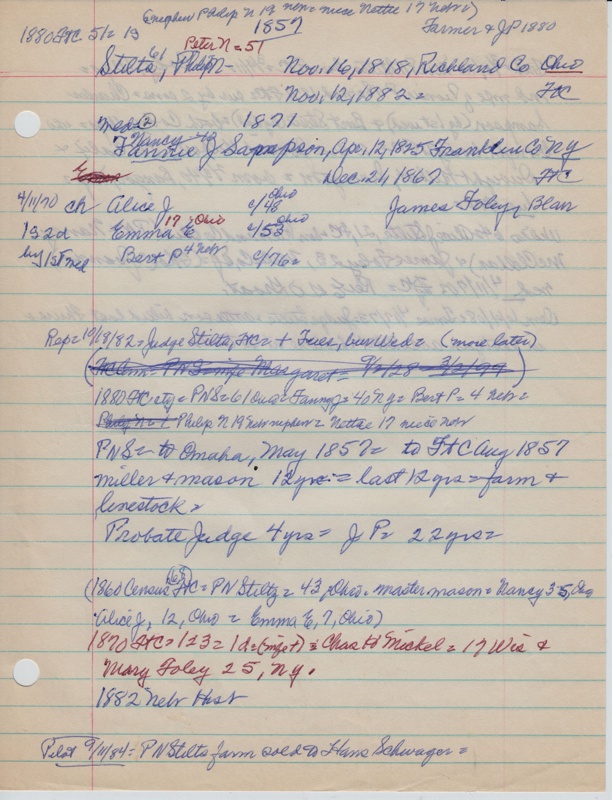 (nephew Philip N 19 nebr = niece Nettie 17 nebr)
1880 FtC 51 = 13
1857
Farmer & JP 1880
Peter N = 51
Stilts, 61 Philip N -
Nov. 16, 1818, Richland Co Ohio
Nov. 12, 1882 =
FtC
med (2)
1871
Nancy
Fannie J Sampson, Apr. 12, 1825 Franklin Co NY
Dec. 21, 1867
FtC
4/11/70 ch
Alice J
c/48 Ohio
James Foley, Blair
1s 2d
Emma E 17 Ohio
c/53 Ohio
by 1st med
Bert P 4 nebr
c/76 =
Rep = 10/18/82 = Judge Stilts, FtC = + Tues, bur Wed = (more later)
1880 FtC cty = PNS = 61 Ohio = Fanny J = 40 Ny = Bert P = 4 Nebr =
Philip N 19 nebr nephew = Nettie 17 niece nebr
PNS = to Omaha, May 1857 = to FtC Aug 1857
miller & mason 12 yrs = last 12 yrs = farm &
livestock =
Probate Judge 4 yrs = J P = 22 yrs =
(1860 Census FtC = PN Stiltz = 43, Ohio = master mason = Nancy 35, Oh =
Alice J, 12, Ohio = Emma E, 7, Ohio)
1870 FtC = 123 = 1d = (misfot) = Chas H Mickel = 17 Wis &
Mary Foley 25, Ny.
1882 Nebr Hist
Pilot 9/11/84 = PN Stilts farm sold to Hans Schwager =